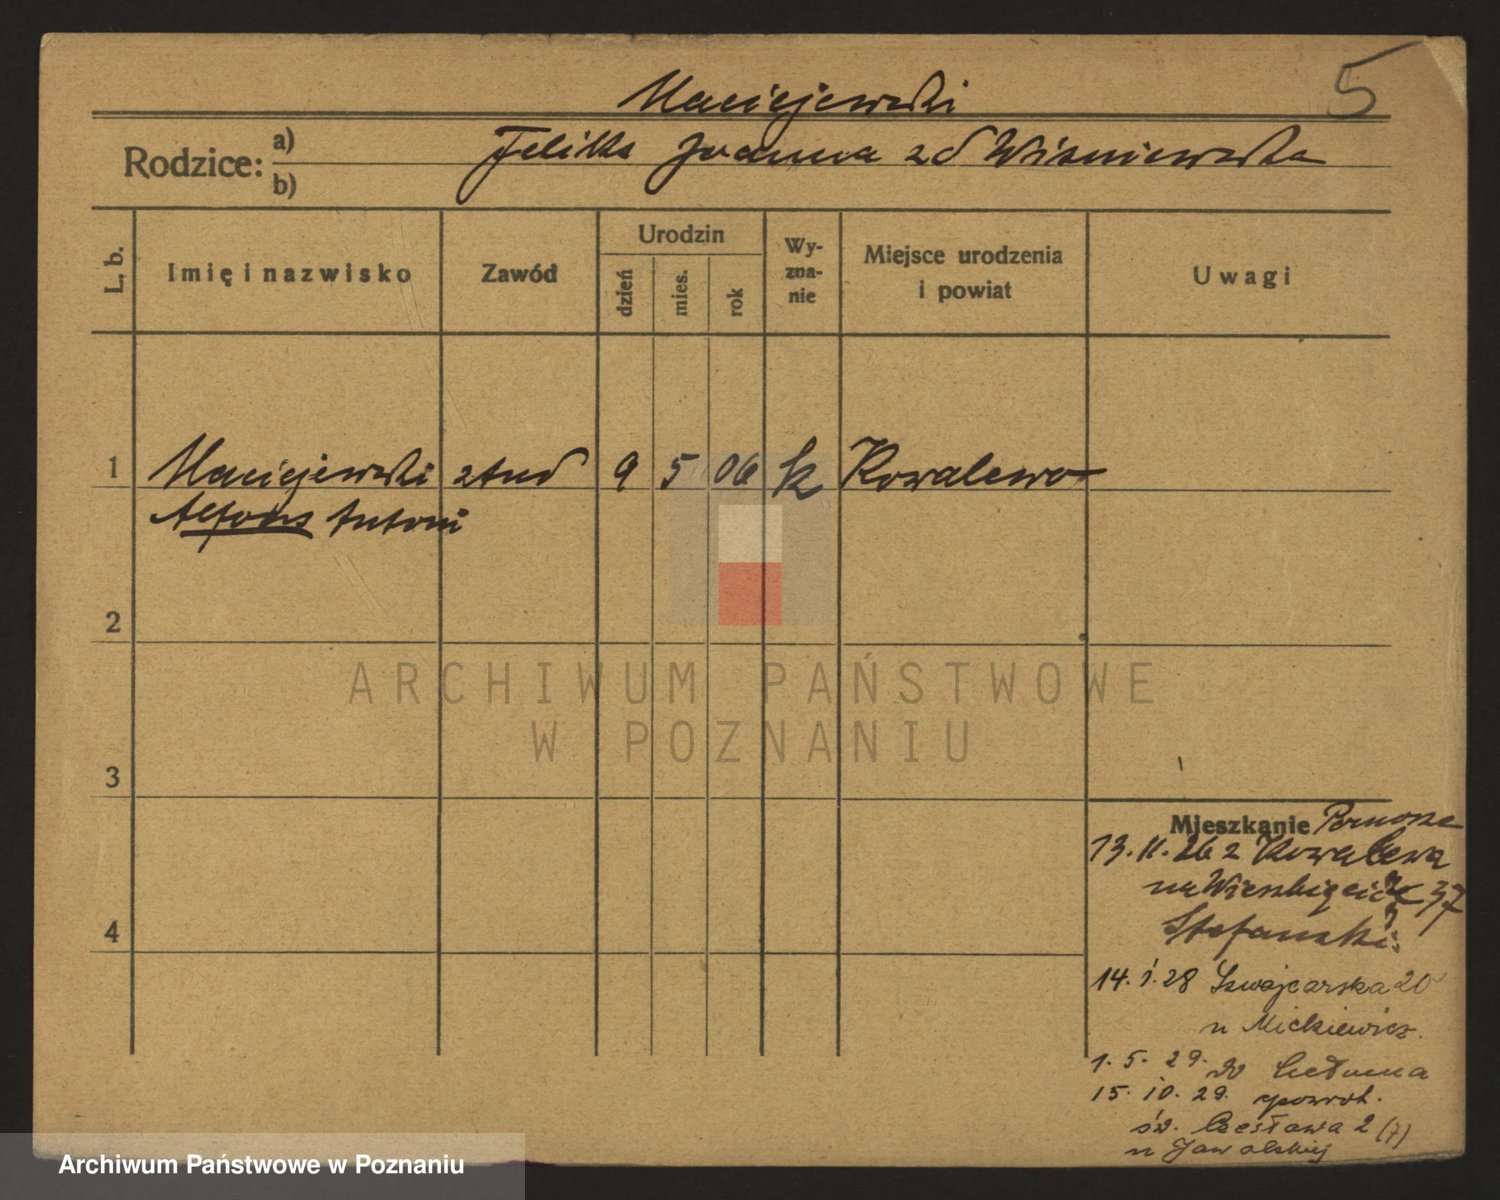 5
Maciejewski
Rodzice: a) Feliks Joanna zd Wiśniewska
b)
L. b.
Imię i nazwisko
Zawód
Urodzin
dzień
mies.
rok
Wy-
zna-
nie
Miejsce urodzenia
i powiat
Uwagi
1 Maciejewski stud 9 5 06 k Kowalewo
Alfons Antoni
2
3
4
ARCHIWUM PAŃSTWOWE
W POZNANIU
Mieszkanie
13.11.26 z Kowalewa
37
Stefański
14.1.28 Szwajcarska 20
u Mickiewicz.
1.5.29. do
15.10.29. powrot.
św. Czesława 2 (7)
u
Archiwum Państwowe w Poznaniu